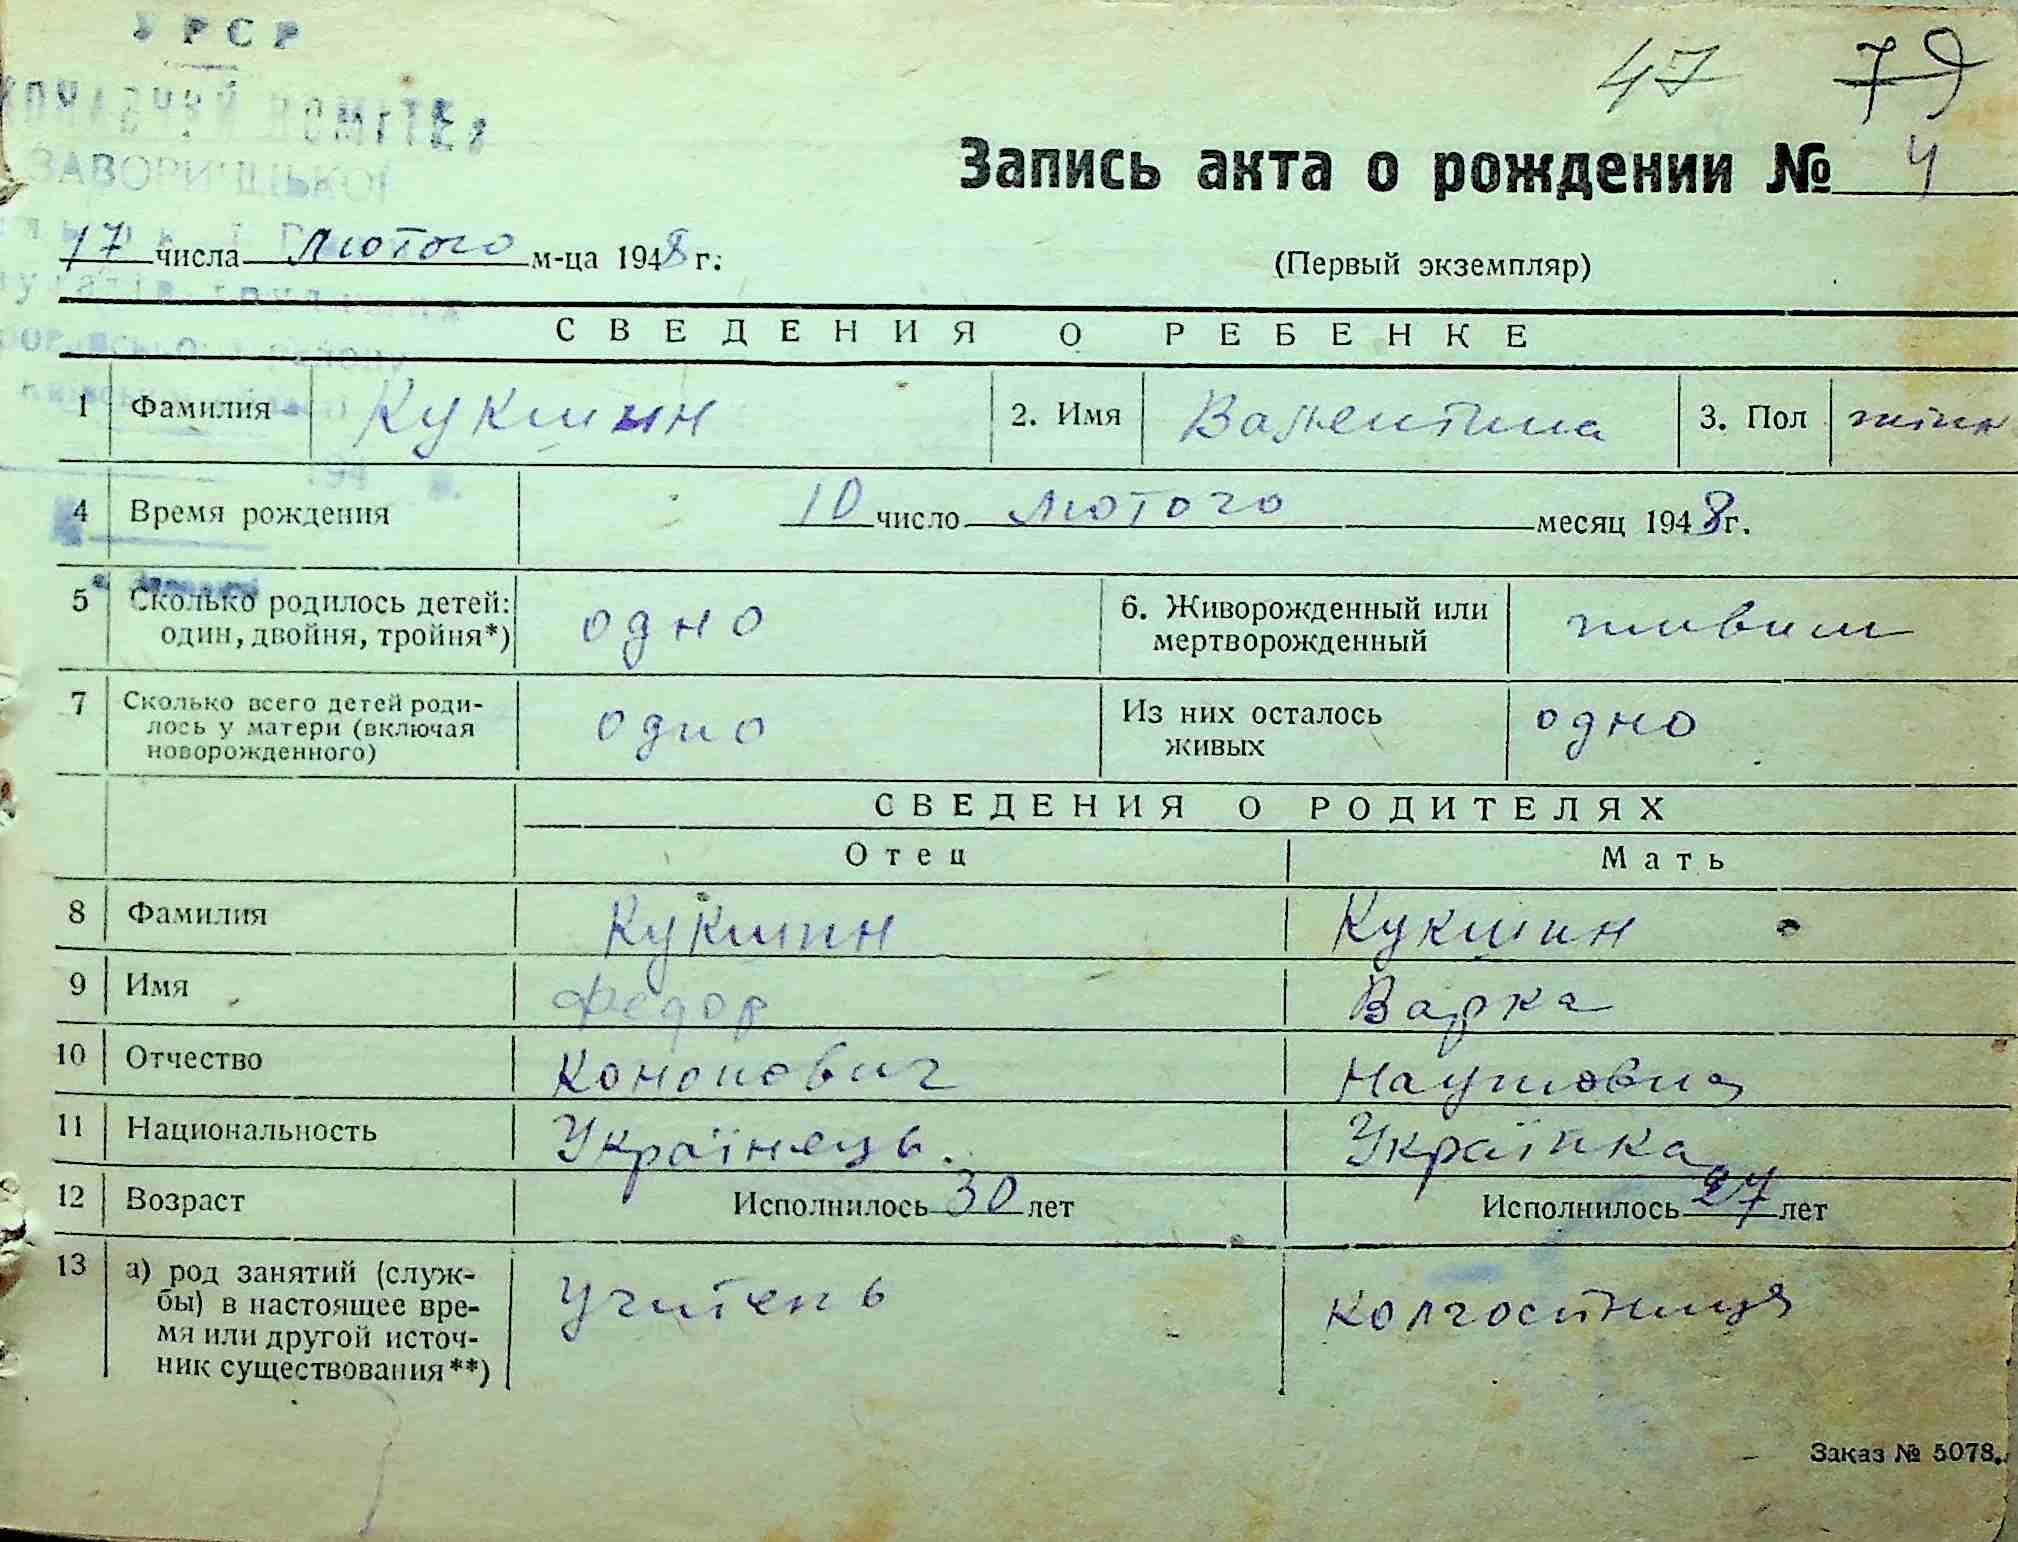 УРСР
ЗАВОРИЦЬКОЇ
47 79
Запись акта о рождении № 4
17 числа лютого м-ца 1948 г.
(Первый экземпляр)
СВЕДЕНИЯ О РЕБЕНКЕ
1 Фамилия Кукшин 2. Имя Валентина 3. Пол жінк
4 Время рождения 10 число лютого месяц 1948 г.
5 Сколько родилось детей: один, двойня, тройня*) одно 6. Живорожденный или мертворожденный живим
7 Сколько всего детей родилось у матери (включая новорожденного) одно Из них осталось живых одно
СВЕДЕНИЯ О РОДИТЕЛЯХ
Отец Мать
8 Фамилия Кукшин Кукшин
9 Имя Федор Варка
10 Отчество Кононович Наумовна
11 Национальность Українець. Українка
12 Возраст Исполнилось 30 лет Исполнилось 27 лет
13 а) род занятий (служ-
бы) в настоящее вре-
мя или другой источ-
ник существования**) Учитель колгоспниця
Заказ № 5078.